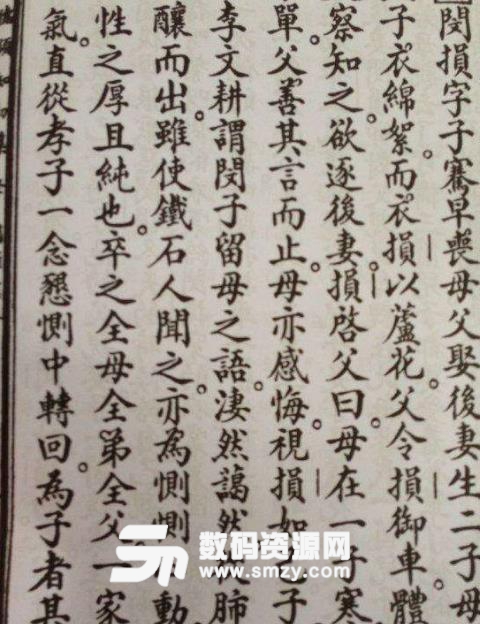 閔損字子騫早喪母父娶後妻生二子母
子衣綿絮。而衣損以蘆花。父令損御車。體
察知之。欲逐後妻。損啓父曰。母在一子寒
單。父善其言而止。母亦感悔。視損如子
李文耕謂閔子留母之語。淒然藹然肺
釀而出。雖使鐵石人聞之。亦為惻惻動
性之厚且純也。卒之全母全弟全父一家
氣。直從孝子一念懇惻中轉回。為子者其
数码资源网
www.smzy.com